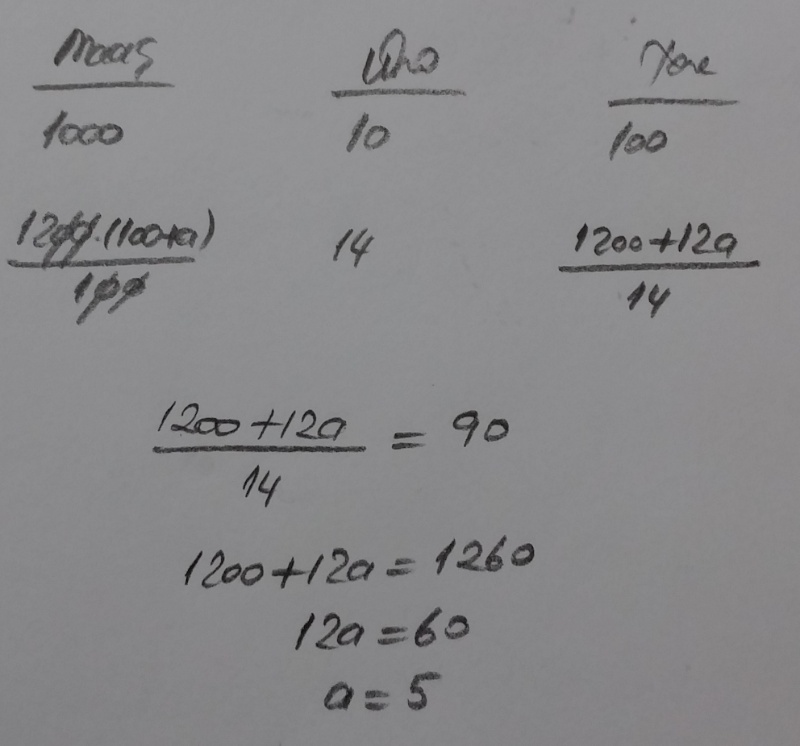 Maaş Ürün Yüzde
1000 10 100
1200.(100+a) 14 1200+12a
100 14
1200+12a = 90
14
1200+12a = 1260
12a = 60
a = 5